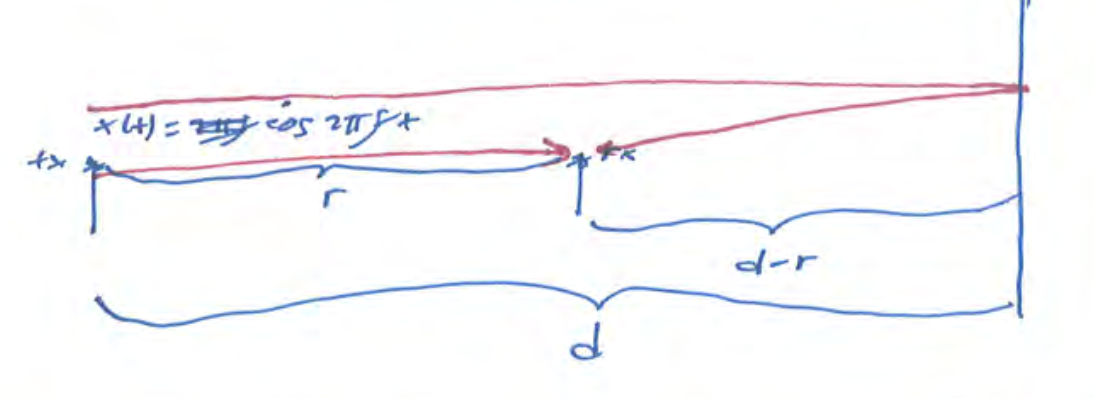 x(t) = cos 2πft
tx
rx
r
d-r
d